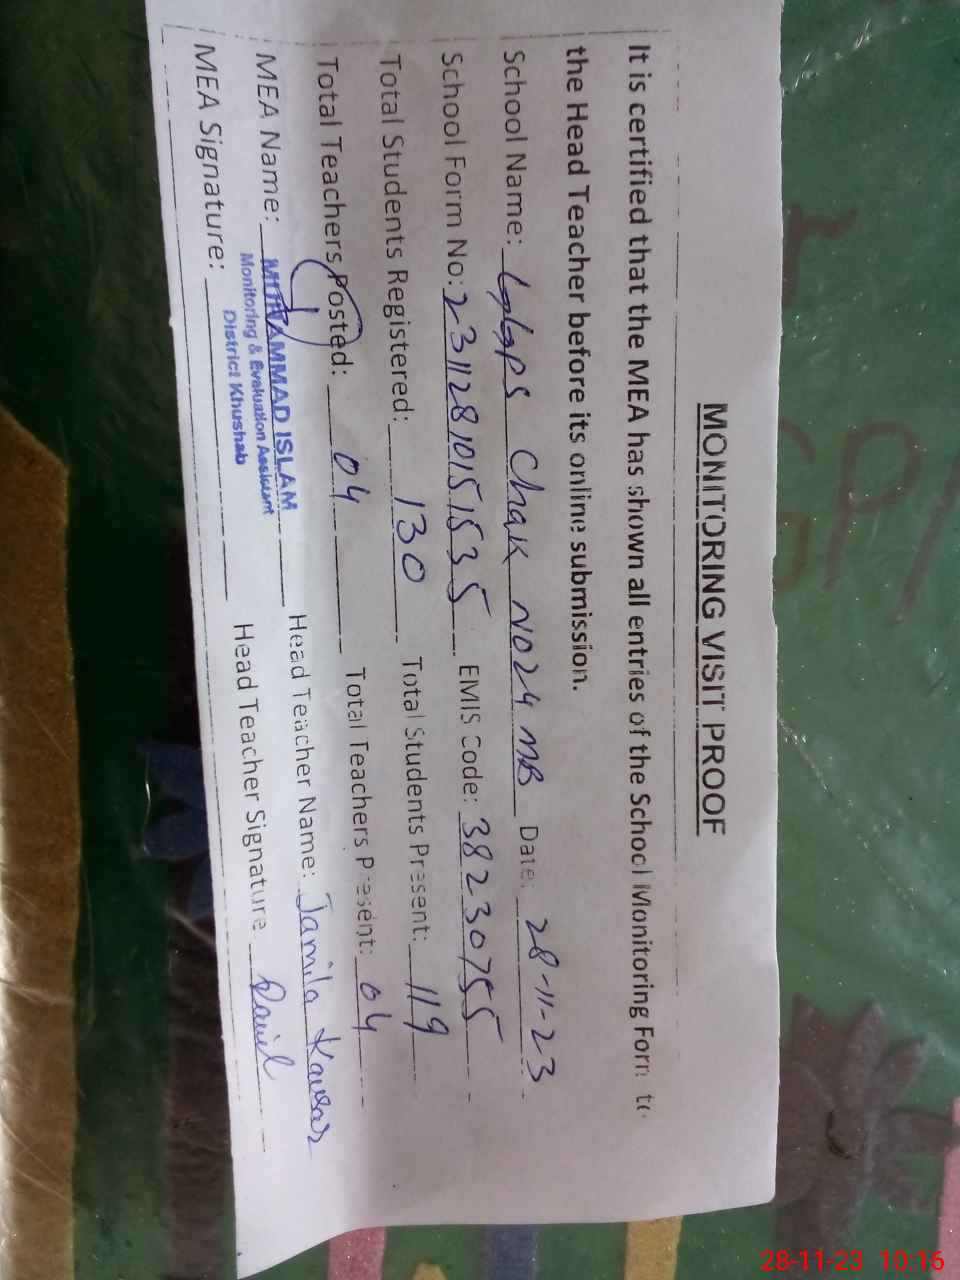 MONITORING VISIT PROOF
It is certified that the MEA has shown all entries of the School Monitoring Form to
the Head Teacher before its online submission.
School Name: GGPS Chak NO24 MB Date: 28-11-23
School Form No: 23112810151535 EMIS Code: 38230755
Total Students Registered: 130 Total Students Present: 119
Total Teachers Posted: 04 Total Teachers Present: 04
MEA Name: MUHAMMAD ISLAM Head Teacher Name: Jamila Kausar
Monitoring & Evaluation Assistant
District Khushab
MEA Signature: Head Teacher Signature
28-11-23 10:16